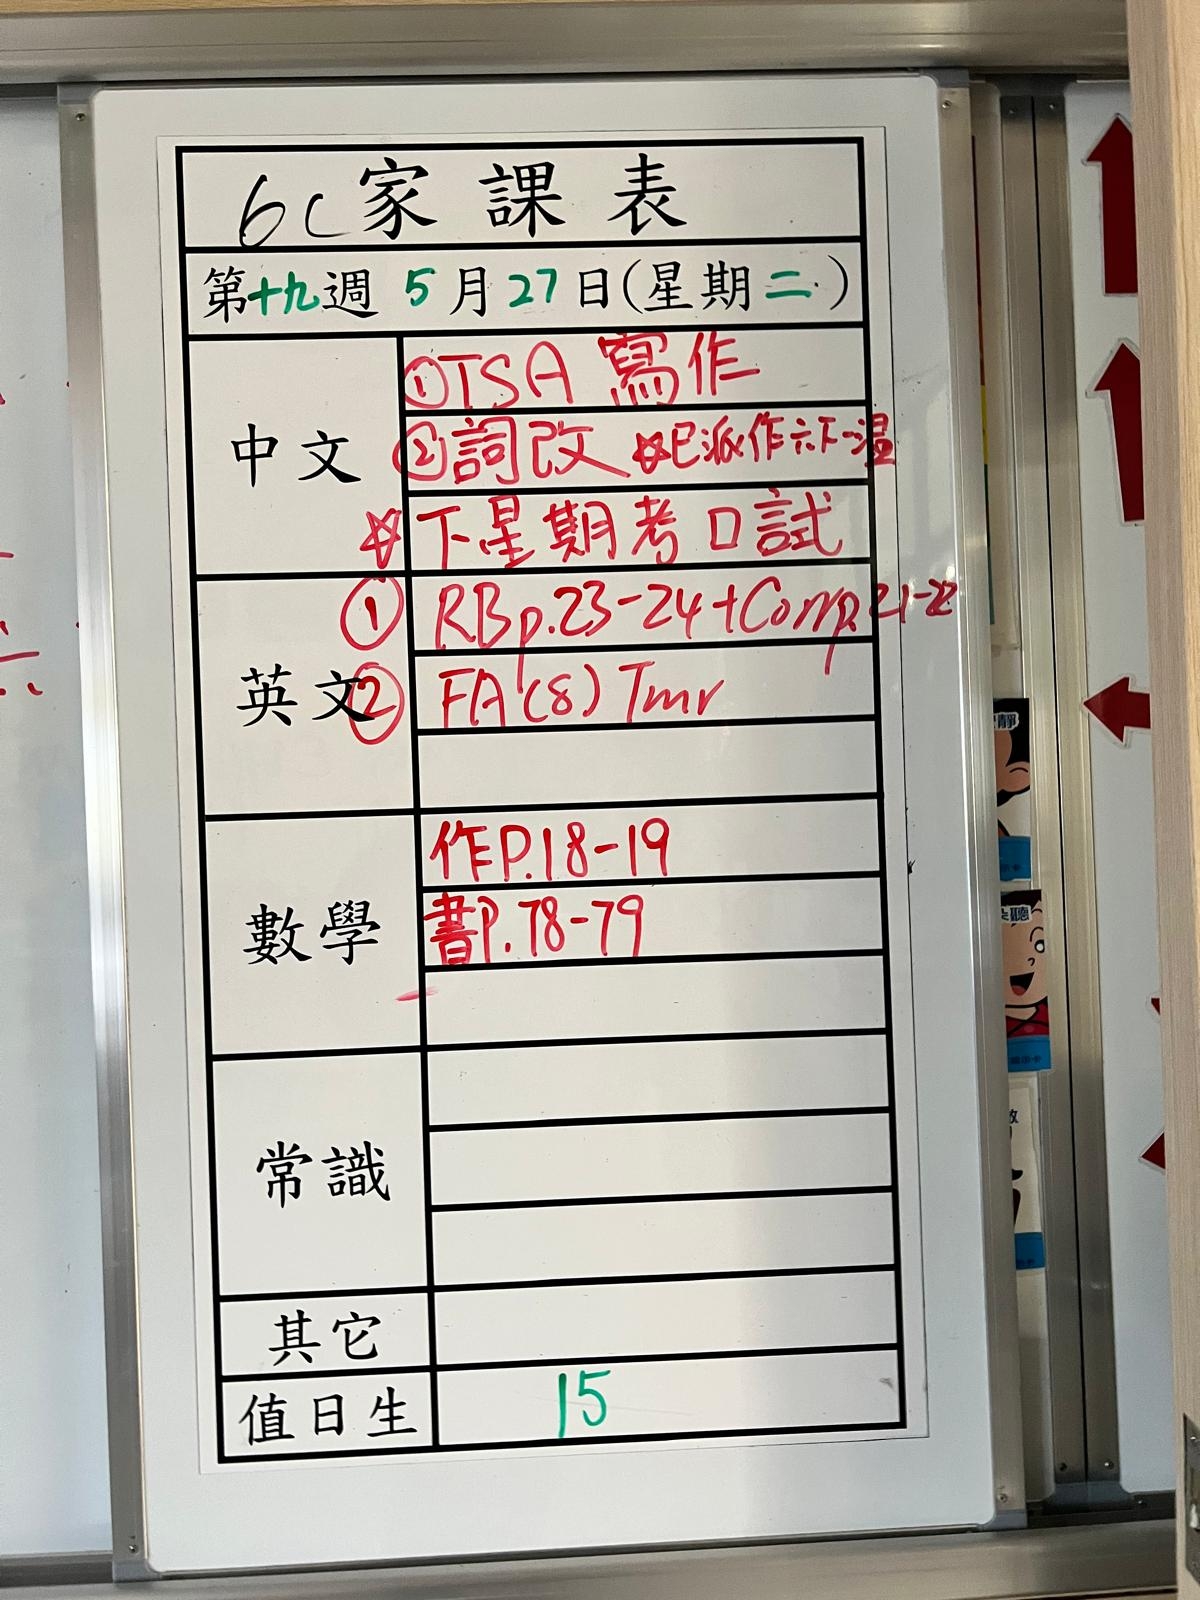 6C家課表
第十九週 5月27日(星期二)
中文
①TSA 寫作
②詞改 ☆已派作六下一温
☆下星期考口試
英文
① RB p.23-24+Comp.21-22
② FA(8) Tmr
數學
作P.18-19
書P.78-79
常識
其它
值日生
15
靜
聽